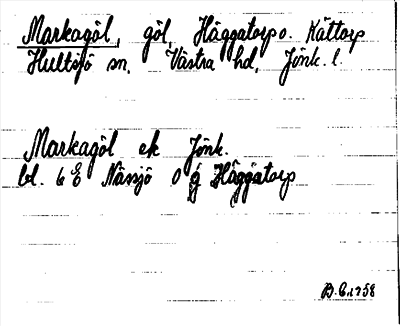 Markagöl, göl, Häggatorp o. Kättorp
Hultsjö sn, Västra hd, Jönk. l.
Markagöl ek Jönk.
bl. 6 E Nässjö 0 g Häggatorp